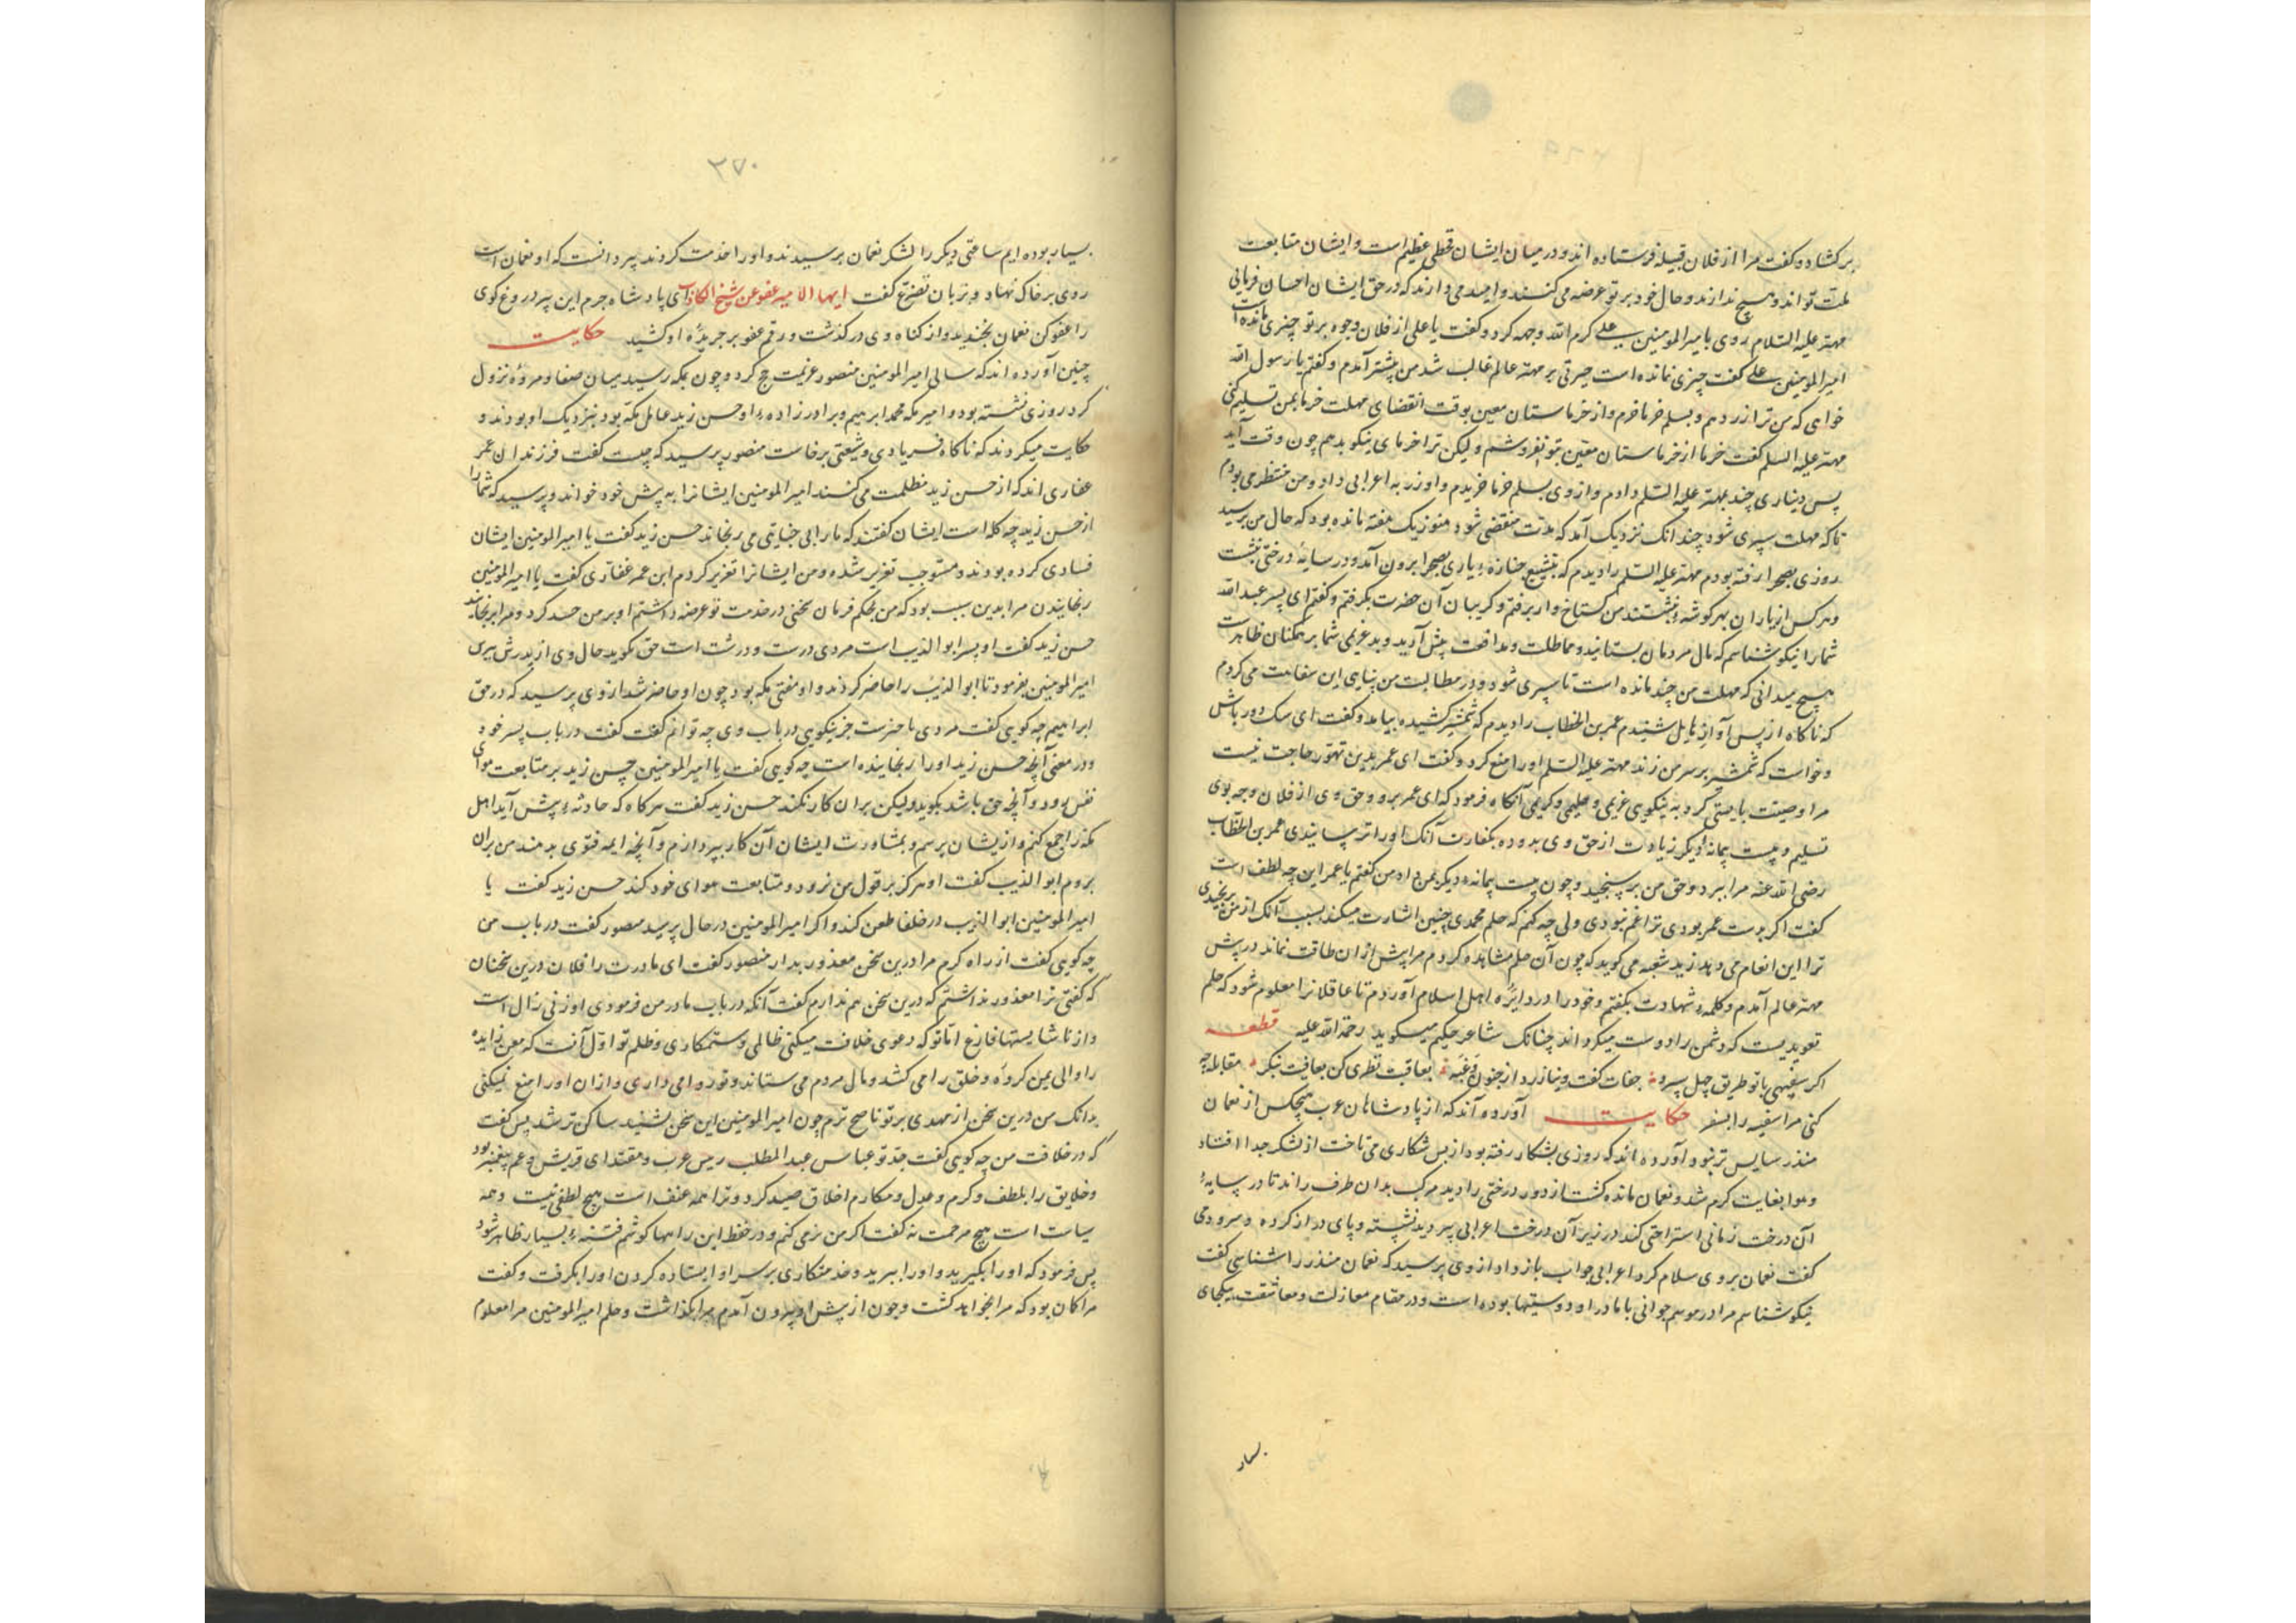 برکشاد و کفت مرا از فلان قبیله فرستاده اند و در میان ایشان قحطی عظیم است و ایشان متابعت
ملت تو اند و هیچ ندارند و حال خود بر تو عرضه می کنند و امید می دارند که در حق ایشان احسان فرمایی
مهتر علیه السلام روی بامیر المومنین علی کرم الله وجهه کرد و کفت یا علی از فلان وجوه بر تو چیزی مانده است
امیر المومنین علی کفت چیزی نمانده است حیرتی بر مهتر عالم غالب شد من پیشتر آمدم و کفتم یا رسول الله
خواهی که من ترا زر دهم و بسلم خرما خرم و از خرماستان معین بوقت انقضای مهلت خرما بمن تسلیم کنی
مهتر علیه السلم کفت خرما از خرماستان معین بتو نفروشم ولیکن ترا خرمای نیکو بدهم چون وقت آید
پس دیناری چند بمهتر علیه السلم دادم و از وی بسلم خرما خریدم و او زر به اعرابی داد و من منتظر می بودم
تا که مهلت سپری شود چندانک نزدیک آمد که مدت منقضی شود هنوز یک هفته مانده بود که حال من برسید
روزی بصحرا رفته بودم مهتر علیه السلم را دیدم که بتشییع جنازهٔ یاری بصحرا برون آمد و در سایهٔ درختی بنشست
و هر کس از یاران بهر کوشهٔ بنشستند من کستاخ وار برفتم و کریبان آن حضرت بکرفتم و کفتم ای پسر عبد الله
شما را نیکو شناسم که مال مردمان بستانید و مماطلت و مدافعت پیش آرید و بد غریمی شما بر همکنان ظاهرست
هیچ میدانی که مهلت من چند مانده است تا سپری شود و در مطالبت من پنایی این سفاهت می کردم
که ناکاه از پس آواز هایل شنیدم عمر بن الخطاب را دیدم که شمشیر کشیده بیامد و کفت ای سک دور باش
و خواست که شمشیر بر سر من زند مهتر علیه السلم او را منع کرد و کفت ای عمر بدین تهور حاجت نیست
مرا وصیت بایستی کرد به نیکویی غریمی و حلیمی و کریمی آنکاه فرمود که ای عمر برو و حق وی از فلان وجه بوی
تسلیم و بیست پیمانه دیکر زیادت از حق وی بدو ده بکفارت آنک او را ترسانیدی عمر بن الخطاب
رضی الله عنه مرا ببرد و حق من برسنجید و چون بیست پیمانهٔ دیکر بمن داد من کفتم یا عمر این چه لطف است
کفت اکر بدست عمر بودی ترا غم نبودی ولی چه کنم که حلم محمدی چنین اشارت میکند بسبب آنک از من برنجیدی
ترا این انعام می دهد زید شعبه می کوید که چون آن حلم مشاهده کردم مرا بیش از ان طاقت نماند در پیش
مهتر عالم آمدم و کلمهٔ شهادت بکفتم و خود را در دایرهٔ اهل اسلام آوردم تا عاقلانرا معلوم شود که حلم
تعویدیست که دشمن را دوست میکرداند چنانک شاعر حکیم میکوید رحمة الله علیه قطعه
اکر سفیهی با تو طریق جهل سپرد جفات کفت و بیازرد از جنون و غیه بعاقبت نظری کن بعافیت بنکر مقابله چه
کنی مر سفیه را بسفه حکایت آورده اند که از پادشاهان عرب هیچکس از نعمان
منذر سایس تر نبود آورده اند که روزی بشکار رفته بود از پس شکاری می تاخت از لشکر جدا افتاد
و هوا بغایت کرم شد و نعمان مانده کشت از دور درختی را دید مرکب بدان طرف راند تا در سایهٔ
آن درخت زمانی استراحتی کند در زیر آن درخت اعرابی پیر دید نشسته و پای دراز کرده و سرودی
کفت نعمان بر وی سلام کرد اعرابی جواب باز داد از وی پرسید که نعمان منذر را شناسی کفت
نیکو شناسم مرا در موسم جوانی با مادر او دوستیها بوده است و در مقام مغازلت و معاشقت یکجای
بسیار
۳۷۰
بسیار بوده ایم ساعتی دیکر را لشکر نعمان برسیدند و او را خدمت کردند پیر دانست که او نعمان است
روی بر خاک نهاد و بزبان تضرع کفت ایها الامیر عفو عن شیخ الکاذب ای پادشاه جرم این پیر دروغ کوی
را عفو کن نعمان بخندید و از کناه وی در کذشت و رقم عفو بر جریدهٔ او کشید حکایت
چنین آورده اند که سالی امیر المومنین منصور عزیمت حج کرد و چون بمکه رسید میان صفا و مروه نزول
کرد روزی نشسته بود و امیر مکه محمد ابرهیم و برادر زادهٔ او حسن زید عامل مکه بود بنزدیک او بودند و
حکایت میکردند که ناکاه فریادی و شنعتی برخاست منصور پرسید که چیست کفت فرزندان عمر
غفاری اند که از حسن زید تظلمت می کنند امیر المومنین ایشانرا به پیش خود خواند و پرسید که شما را
از حسن زید چه کله است ایشان کفتند که ما را بی جنایتی می رنجاند حسن زید کفت یا امیر المومنین ایشان
فسادی کرده بودند و مستوجب تعزیر شده و من ایشانرا تعزیر کردم ابن عمر غفاری کفت یا امیر المومنین
رنجانیدن مرا بدین سبب بود که من بحکم فرمان سخنی در خدمت تو عرضه داشتم او بر من حسد کرد و مرا برنجانید
حسن زید کفت او پسر ابو الذیب است مردی درست و درشت است حق بکوید حال وی از پدرش بپرس
امیر المومنین بفرمود تا ابو الذیب را حاضر کردند و او مفتی مکه بود چون او حاضر شد از وی پرسید که در حق
ابراهیم چه کویی کفت مردی با حیرت جز نیکویی در باب وی چه توانم کفت کفت در باب پسر خود
و در معنی آنچه حسن زید او را رنجانیده است چه کویی کفت یا امیر المومنین حسن زید بر متابعت هوای
نفس رود و آنچه حق باشد بکوید ولیکن بران کار نکند حسن زید کفت هر کاه که حادثهٔ پیش آید اهل
مکه را جمع کنم و ازیشان برسم و بمشاورت ایشان آن کار بپردازم و آنچه ایمه فتوی بدهند من بران
بروم ابو الذیب کفت او هرکز بر قول من نرود و متابعت هوای خود کند حسن زید کفت یا
امیر المومنین ابو الذیب در خلفا طعن کند و اکر امیر المومنین در حال بپرسد منصور کفت در باب من
چه کویی کفت از راه کرم مرا درین سخن معذور بدار منصور کفت ای مادرت را فلان درین سخنان
که کفتی ترا معذور نداشتم که درین سخن هم ندارم کفت آنکه در باب مادر من فرمودی او زنی زال است
و از ناشایستها فارغ اما تو که دعوی خلافت میکنی ظالمی و ستمکاری و ظلم تو اول آنست که معن زایده
را والی یمن کردهٔ و خلق را می کشد و مال مردم می ستاند و تو روا می داری و از ان او را منع نمیکنی
بدانک من درین سخن از مهدی بر تو ناصح ترم چون امیر المومنین این سخن بشنید ساکن تر شد پس کفت
که در خلافت من چه کویی کفت جد تو عباس عبد المطلب رییس عرب و مقتدای قریش و عم پیغمبر بود
و خلایق را بلطف و کرم و عدل و مکارم اخلاق صید کرد و ترا همه عنف است هیچ لطف نیست و همه
سیاست است هیچ مرحمت نه کفت اکر من نرمی کنم و در حفظ این راهها کوشم فتنهٔ بسیار ظاهر شود
پس فرمود که او را بکیرید و او را ببرید و خدمتکاری بر سر او ایستاده کردن او را بکرفت و کفت
مرا کمان بود که مرا بخواهد کشت و چون از پیش او بیرون آمدم مرا بکذاشت و حلم امیر المومنین مرا معلوم